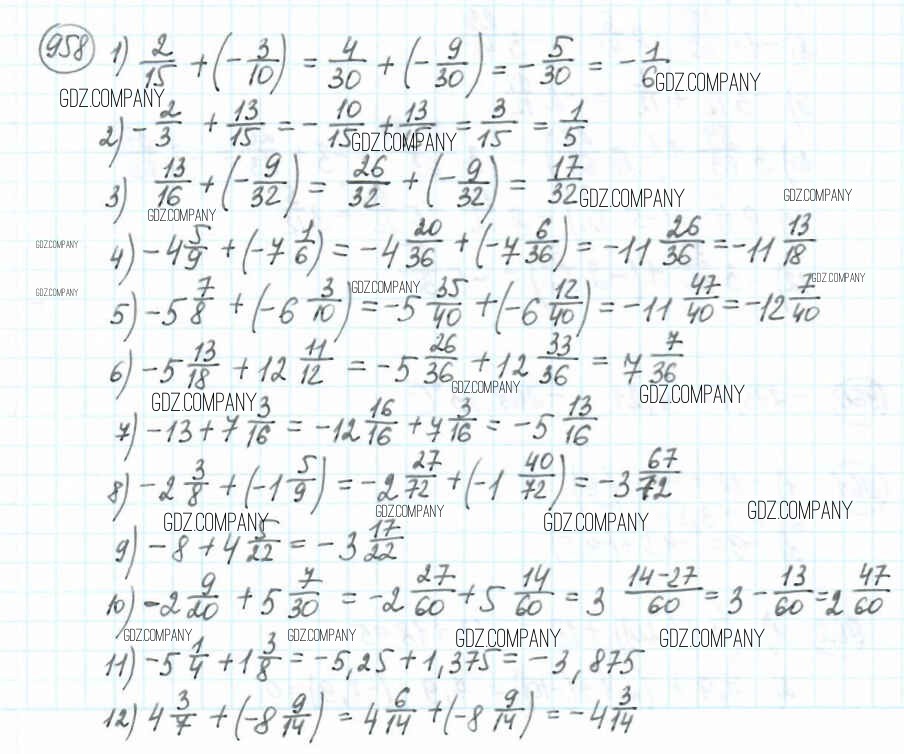 958 1) 2/15 + (-3/10) = 4/30 + (-9/30) = -5/30 = -1/6 GDZ.COMPANY
GDZ.COMPANY
2) -2/3 + 13/15 = -10/15 + 13/15 = 3/15 = 1/5
GDZ.COMPANY
3) 13/16 + (-9/32) = 26/32 + (-9/32) = 17/32 GDZ.COMPANY GDZ.COMPANY
GDZ.COMPANY
GDZ.COMPANY 4) -4 5/9 + (-7 1/6) = -4 20/36 + (-7 6/36) = -11 26/36 = -11 13/18
GDZ.COMPANY GDZ.COMPANY GDZ.COMPANY
5) -5 7/8 + (-6 3/10) = -5 35/40 + (-6 12/40) = -11 47/40 = -12 7/40
6) -5 13/18 + 12 11/12 = -5 26/36 + 12 33/36 = 7 7/36
GDZ.COMPANY GDZ.COMPANY GDZ.COMPANY
7) -13 + 7 3/16 = -12 16/16 + 7 3/16 = -5 13/16
8) -2 3/8 + (-1 5/9) = -2 27/72 + (-1 40/72) = -3 67/72
GDZ.COMPANY GDZ.COMPANY GDZ.COMPANY GDZ.COMPANY
9) -8 + 4 5/22 = -3 17/22
10) -2 9/20 + 5 7/30 = -2 27/60 + 5 14/60 = 3 14-27/60 = 3 - 13/60 = 2 47/60
GDZ.COMPANY GDZ.COMPANY GDZ.COMPANY GDZ.COMPANY
11) -5 1/4 + 1 3/8 = -5,25 + 1,375 = -3,875
12) 4 3/7 + (-8 9/14) = 4 6/14 + (-8 9/14) = -4 3/14